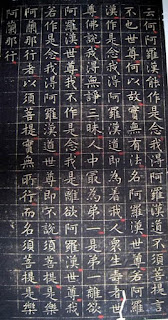 云何阿羅漢能作是念我得阿羅漢道不須菩提言
不也世尊何以故實無有法名阿羅漢世尊若阿羅
漢作是念我得阿羅漢道即為著我人衆生壽者世
尊佛說我得無諍三昧人中㝡為弟一是弟一離欲
阿羅漢世尊我不作是念我是離欲阿羅漢世尊我
若作是念我得阿羅漢道世尊即不說須菩提是樂
阿蘭那行者以須菩提實無所行而名須菩提是樂
阿蘭那行